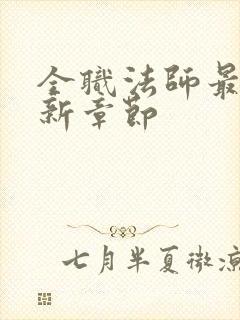 全職法師最
新章節
七月半夏微涼